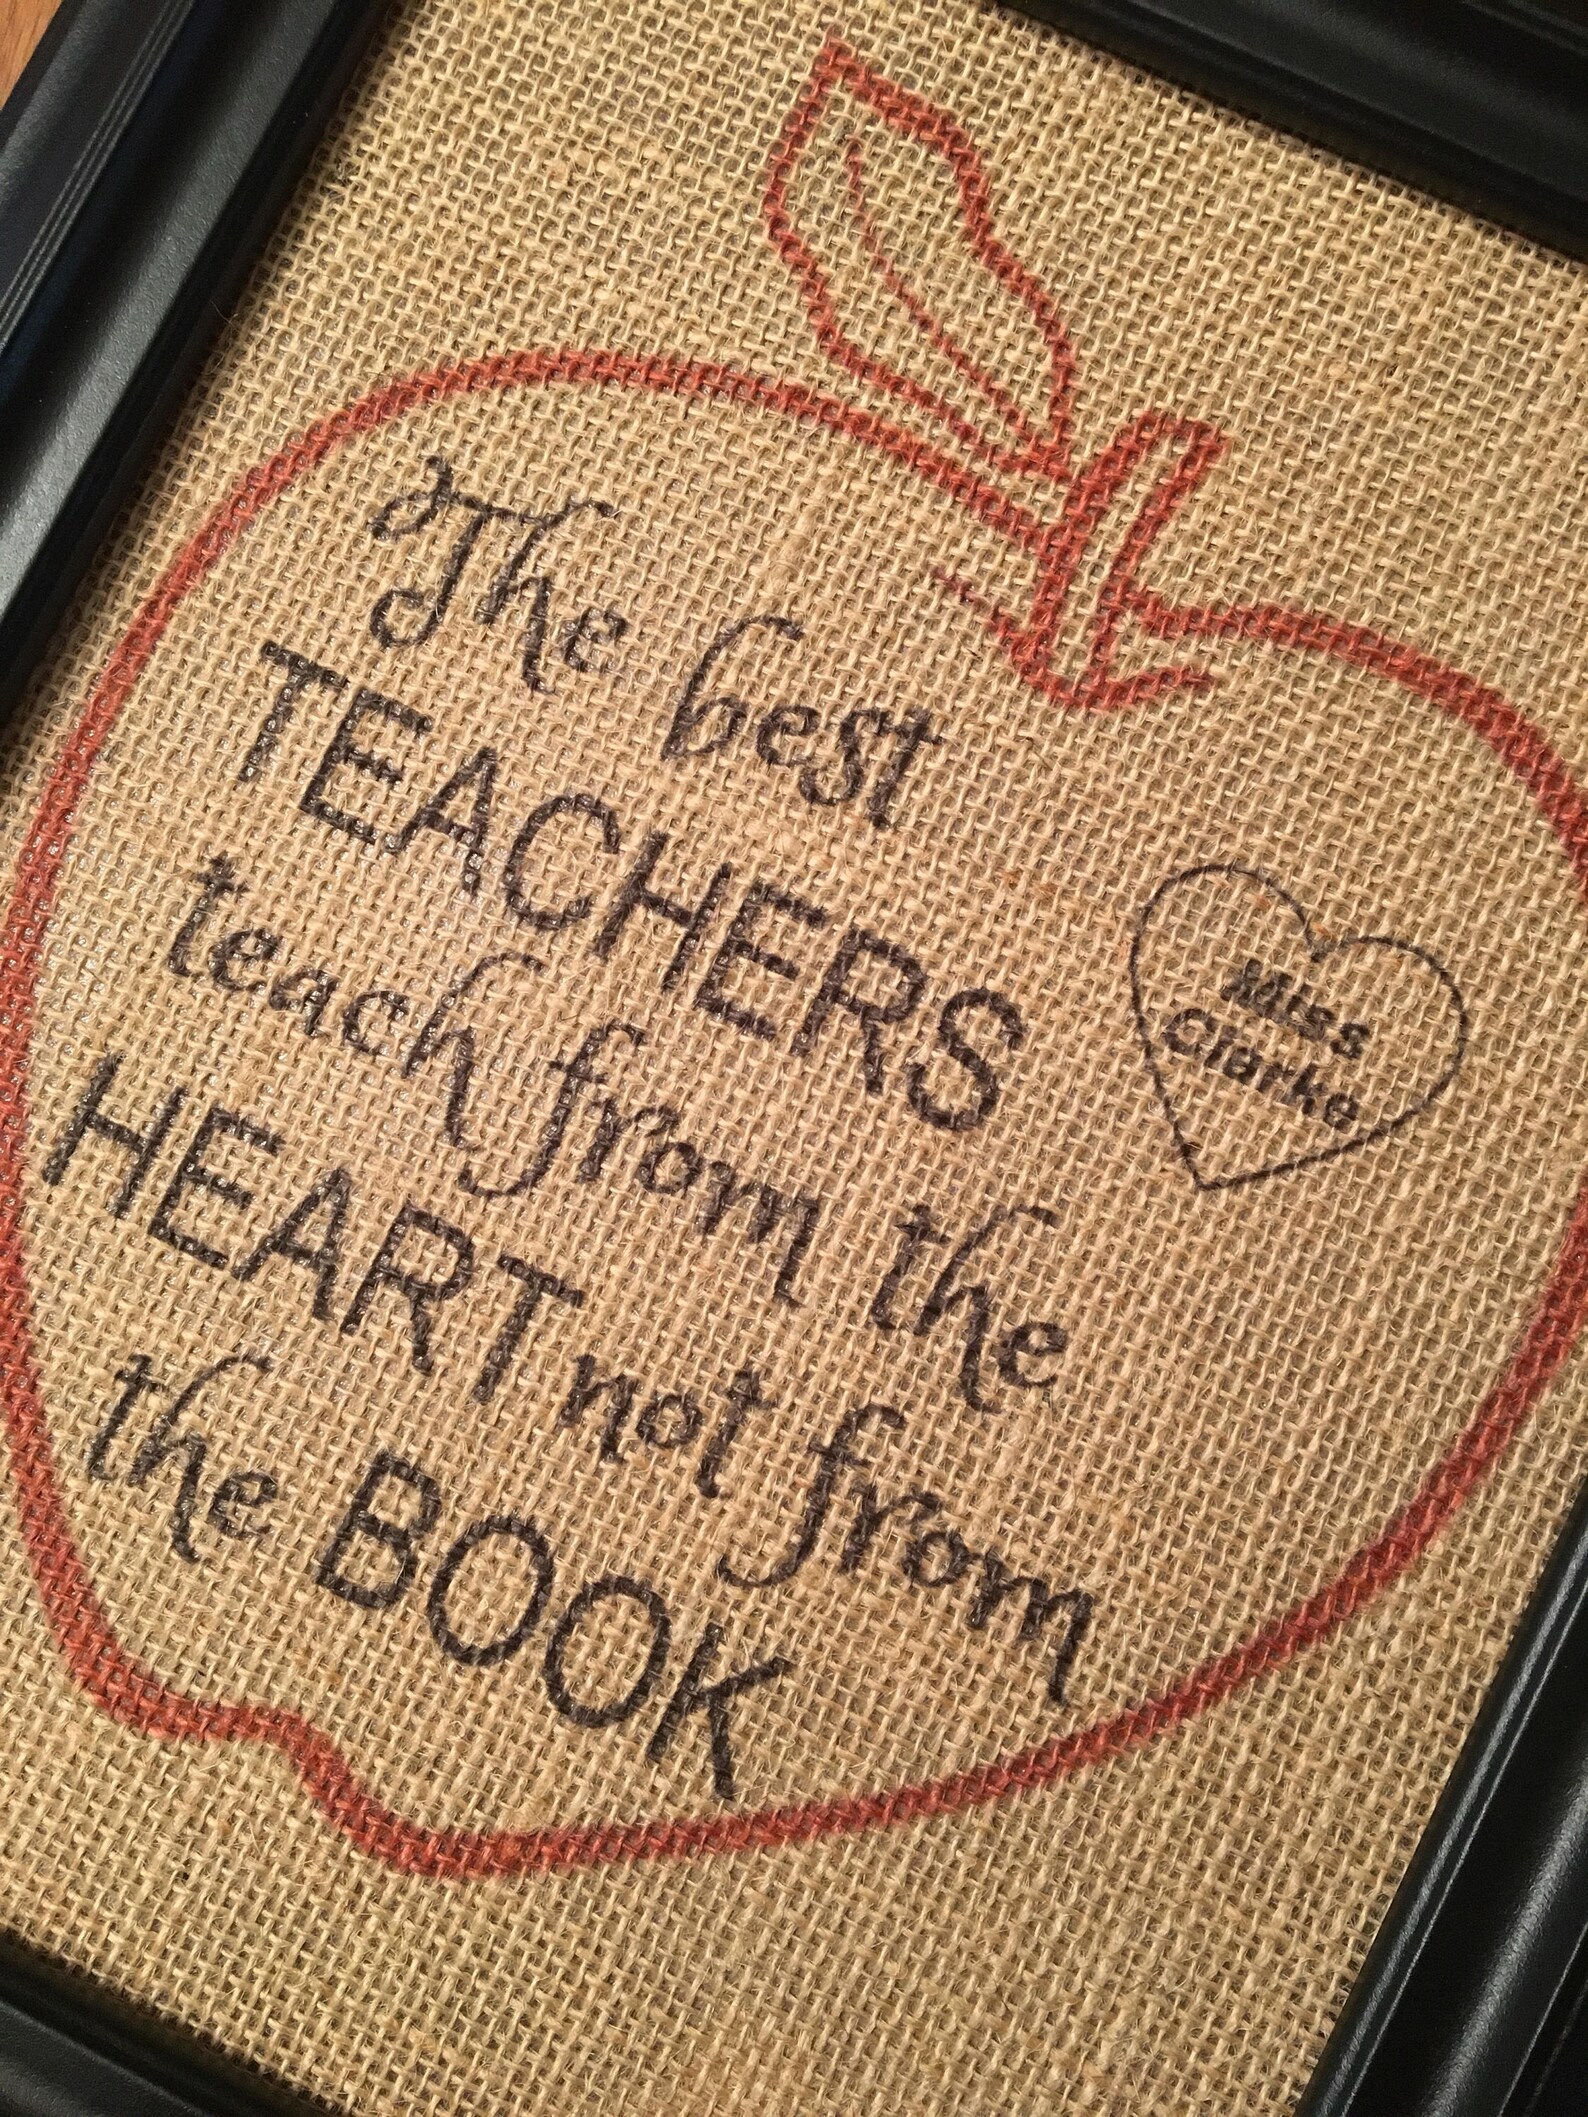 The best
TEACHERS
teach from the
HEART not from
the BOOK
Miss
Clarke